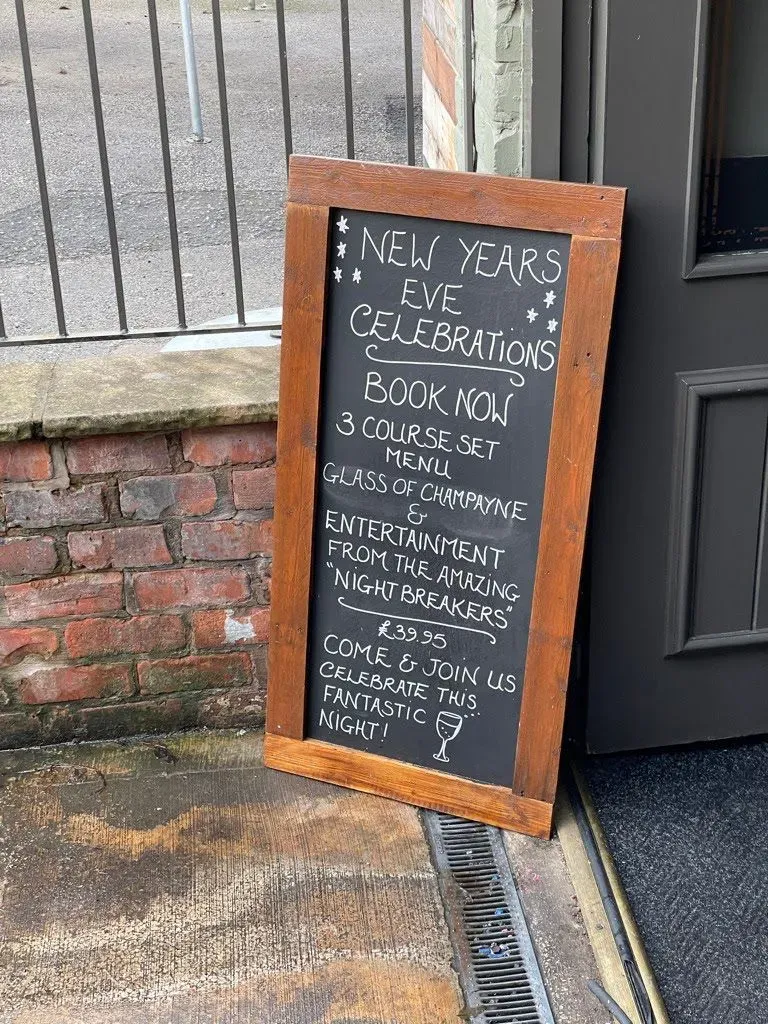 NEW YEARS
EVE
CELEBRATIONS
BOOK NOW
3 COURSE SET
MENU
GLASS OF CHAMPAYNE
&
ENTERTAINMENT
FROM THE AMAZING
"NIGHT BREAKERS"
£39.95
COME & JOIN US
CELEBRATE THIS
FANTASTIC
NIGHT!